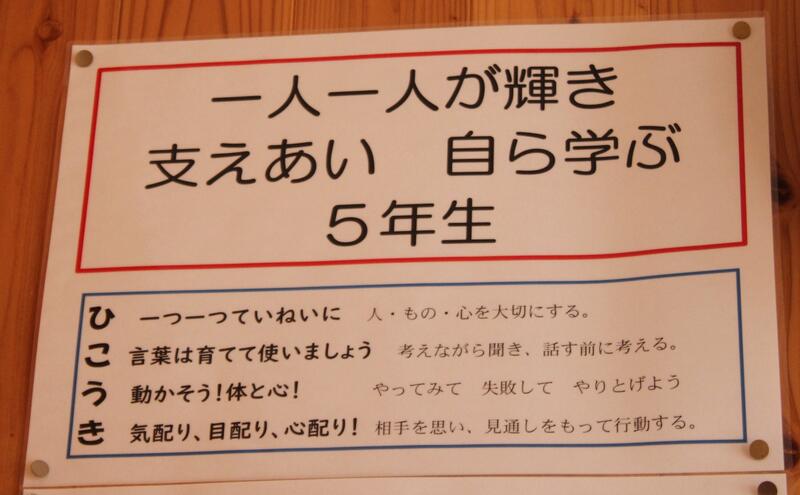 一人一人が輝き
支えあい　自ら学ぶ
５年生
ひ 一つ一つていねいに 人・もの・心を大切にする。
こ 言葉は育てて使いましょう 考えながら聞き、話す前に考える。
う 動かそう！体と心！ やってみて　失敗して　やりとげよう
き 気配り、目配り、心配り！ 相手を思い、見通しをもって行動する。